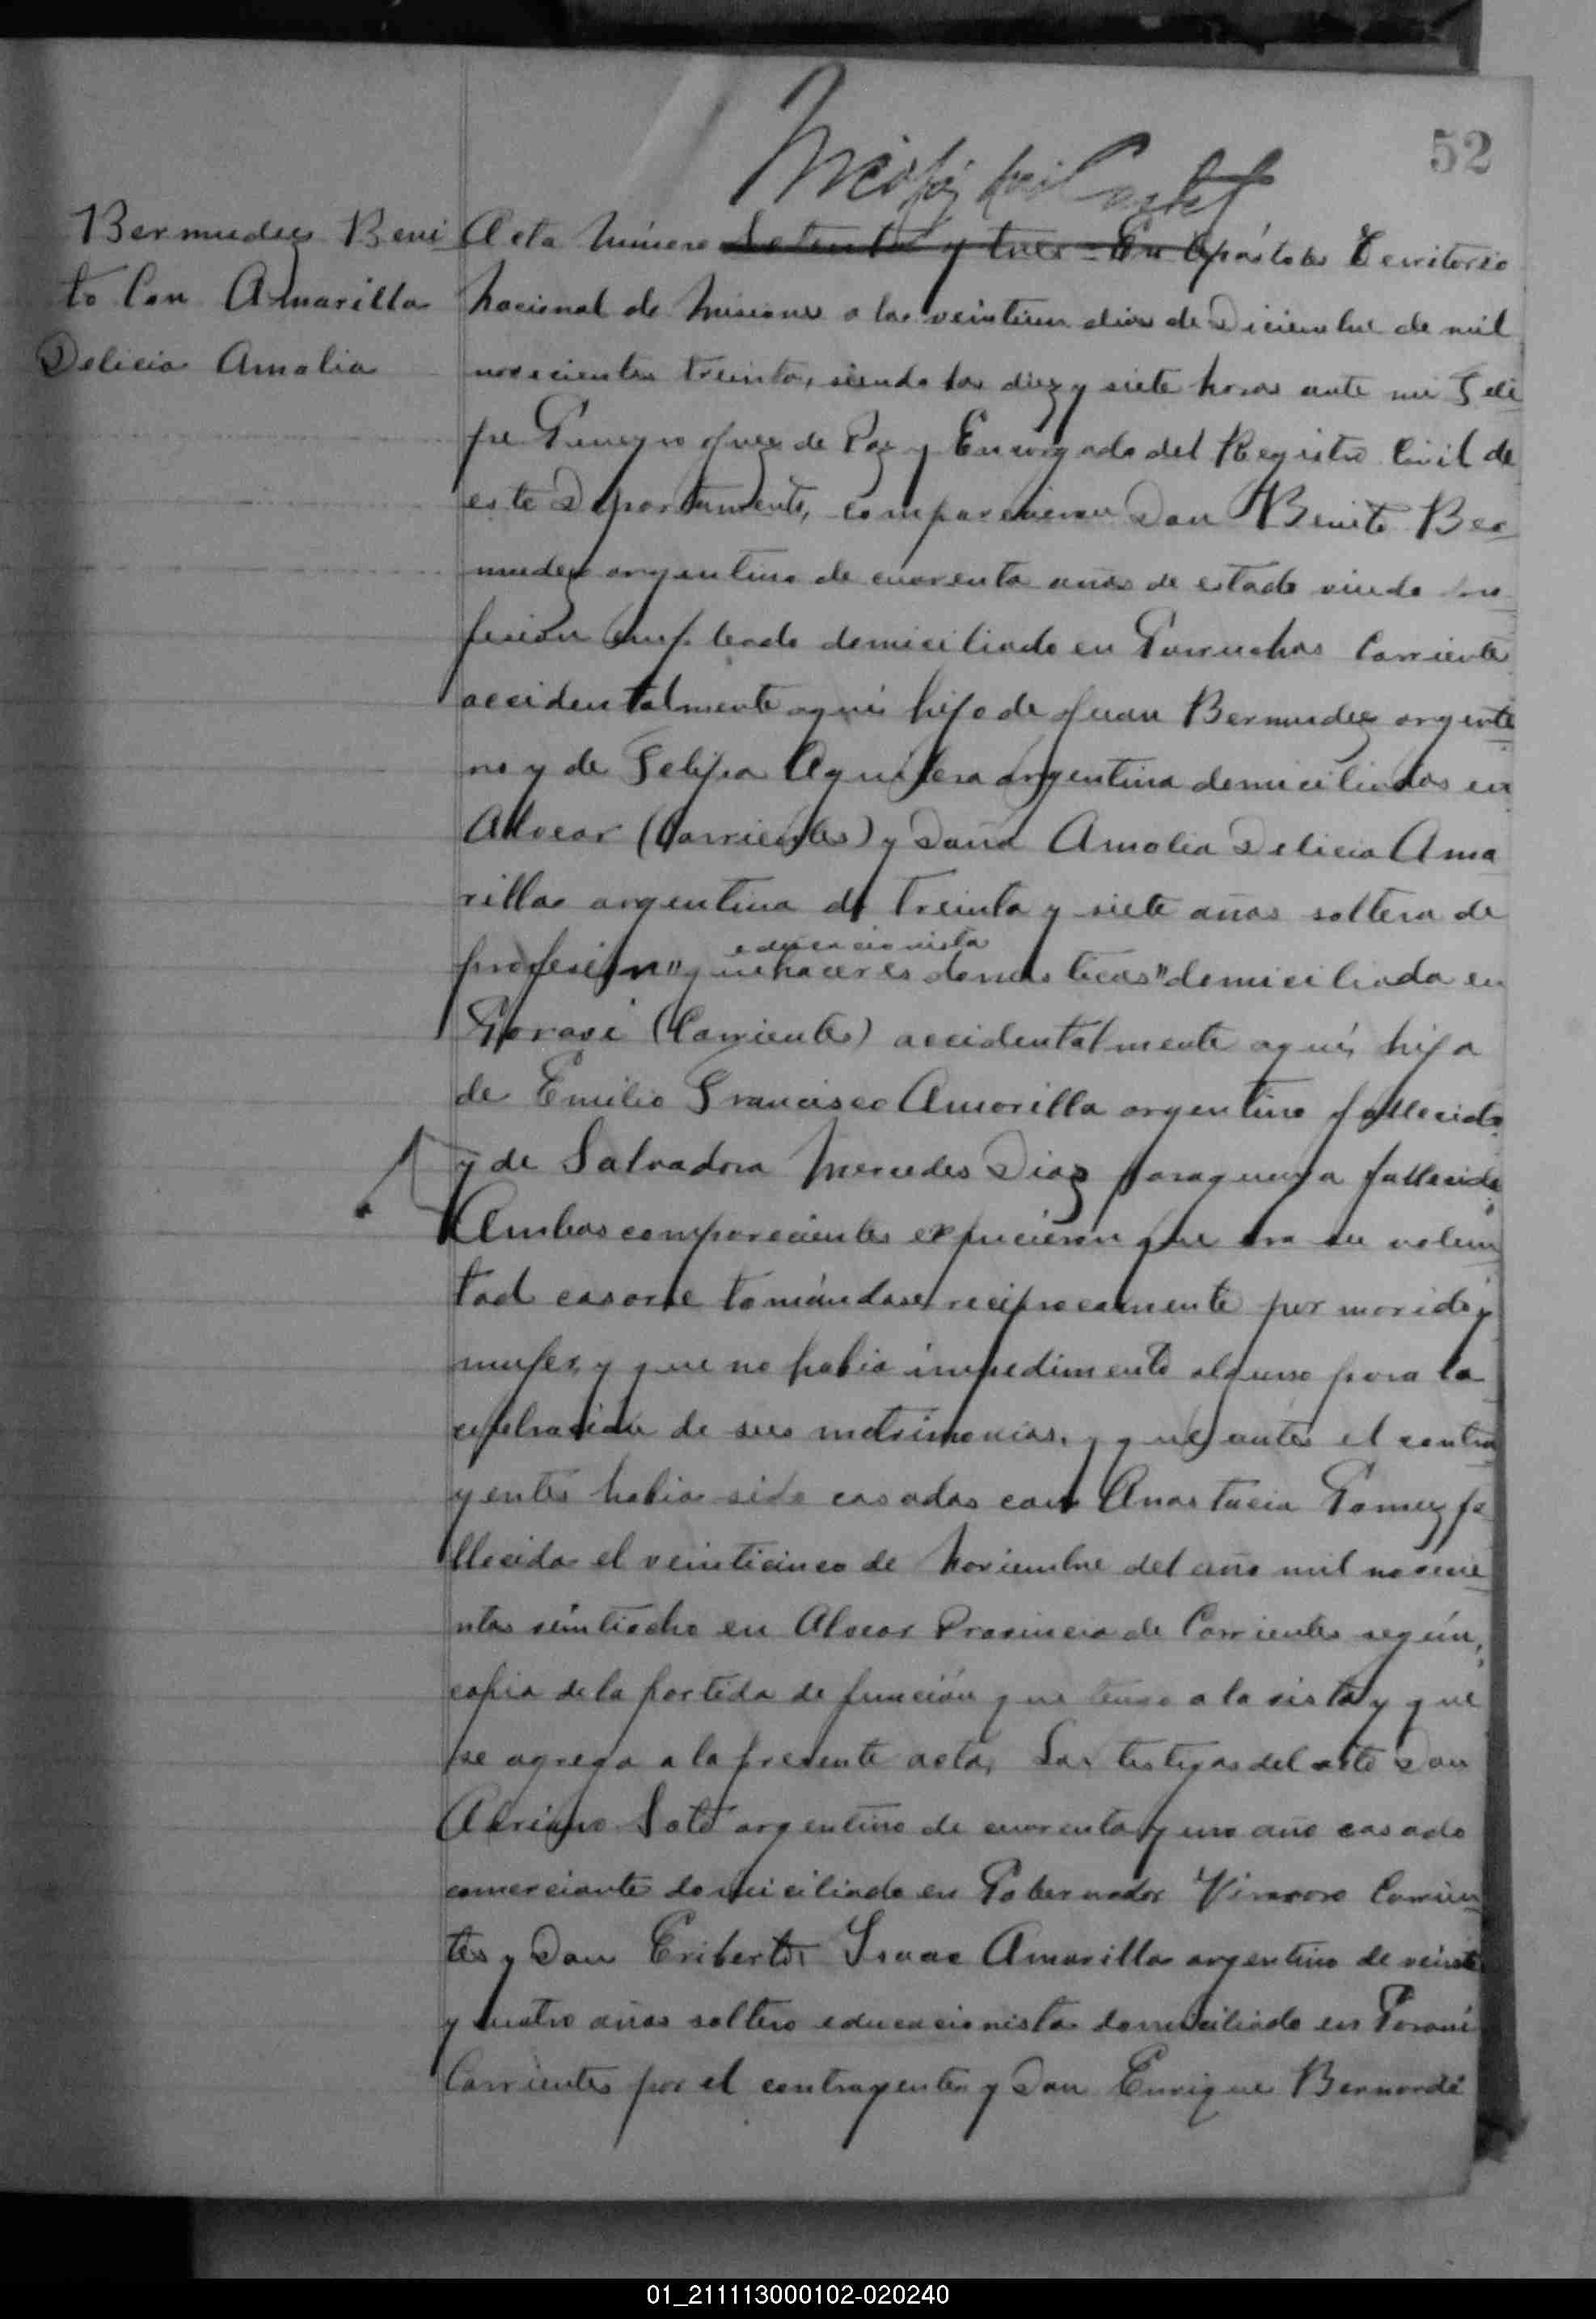 52
Bermudez Beni
to Con Amarilla
Delicia Amalia
Acta Número Setenta y tres = En Apóstoles Territorio
Nacional de Misiones a los veintiun dias de Diciembre de mil
novecientos treinta, siendo las diez y siete horas ante mi Feli
pe Juez de Paz y Encargado del Registro Civil de
este Departamento, comparecieron Don Benito Ber
mudez argentino de cuarenta años de estado viudo pro
fesión empleado domiciliado en Garruchos Corrientes
accidentalmente aquí hijo de Juan Bermudez argenti
no y de Felipa Aguilera argentina domiciliados en
Alvear (Corrientes) y Doña Amalia Delicia Ama
rilla argentina de treinta y siete años soltera de
educacionista
profesión "quehaceres domesticos" domiciliada en
Garaví (Corrientes) accidentalmente aquí, hija
de Emilio Francisco Amarilla argentino fallecido
y de Salvadora Mercedes Diaz paraguaya fallecida
Ambos comparecientes expusieron que era su volun
tad casarse tomándose reciprocamente por marido y
mujer, y que no habia impedimento alguno para la
celebración de sus matrimonios, y que antes el contra
yentes habia sido casados con Anastacia Gomez fa
llecida el veinticinco de Noviembre del año mil novecie
ntos veintiocho en Alvear Provincia de Corrientes según,
copia de la partida de función que tengo a la vista y que
se agrega a la presente acta, Los testigos del acto Don
Adriano Soto argentino de cuarenta y uno año casado
comerciante domiciliado en Gobernador Virasoro Corrien
tes y Don Eriberto Isaac Amarilla argentino de veinte
y cuatro años soltero educacionista domiciliado en Garaví
Corrientes por el contrayentes y Don Enrique Bernardi
01_211113000102-020240